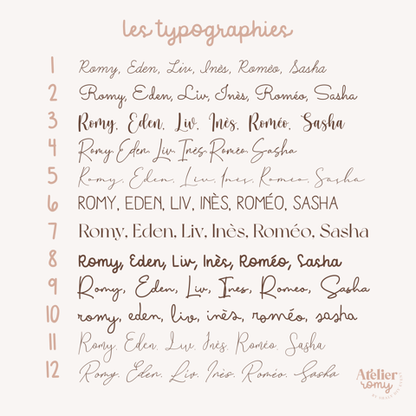 les typographies
1 Romy, Eden, Liv, Inès, Roméo, Sasha
2 Romy, Eden, Liv, Inès, Roméo, Sasha
3 Romy, Eden, Liv, Inès, Roméo, Sasha
4 Romy Eden, Liv, Inès, Roméo, Sasha
5 Romy, Eden, Liv, Ines, Romeo, Sasha
6 ROMY, EDEN, LIV, INÈS, ROMÉO, SASHA
7 Romy, Eden, Liv, Inès, Roméo, Sasha
8 Romy, Eden, Liv, Inès, Roméo, Sasha
9 Romy, Eden, Liv, Ines, Romeo, Sasha
10 romy, eden, liv, inès, roméo, sasha
11 Romy Eden, Liv, Inès, Roméo, Sasha
12 Romy, Eden, Liv, Inès, Roméo, Sasha
Atelier
romy